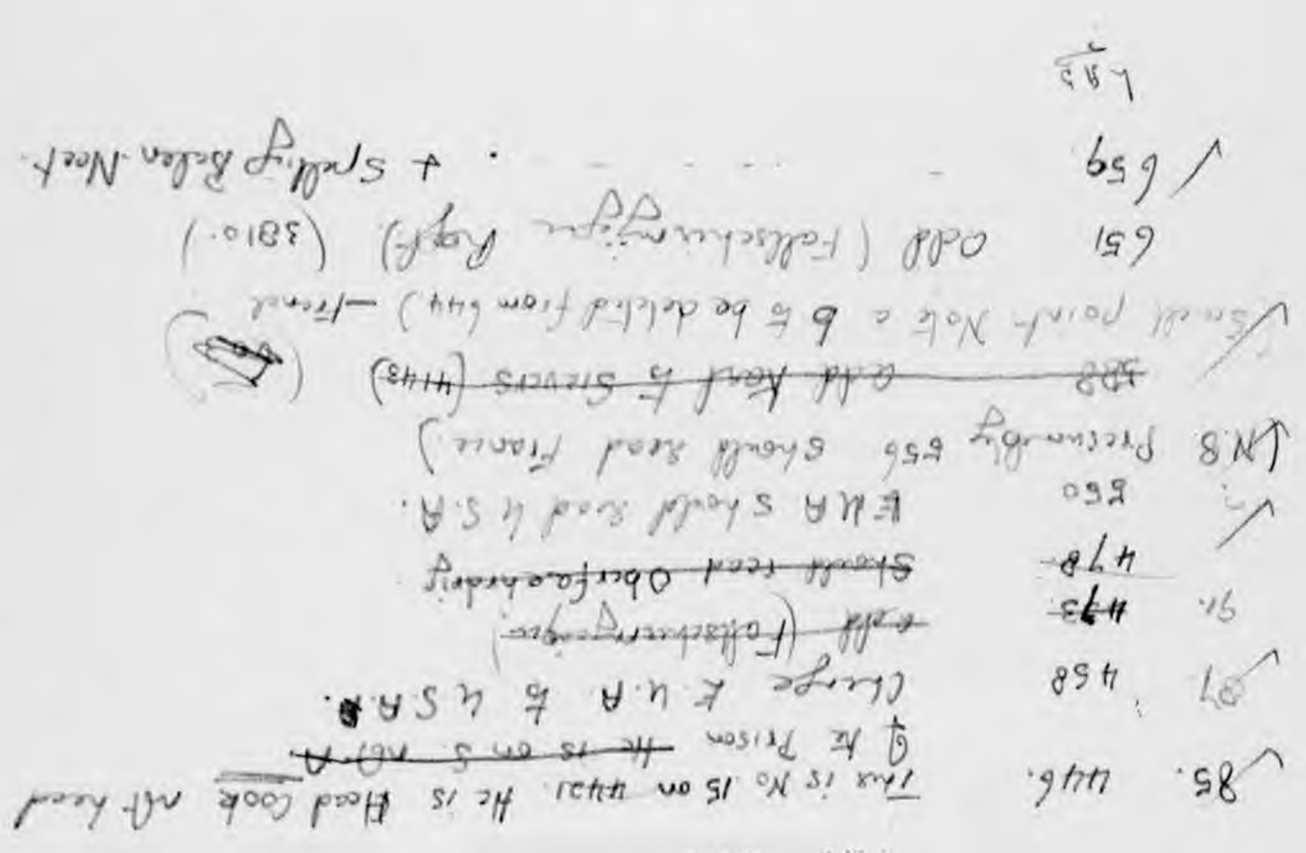 85. 446. This is No. 15 on 4421. He is Head Cook not head
of the Prison He is on S. not A
87 458 Change E.U.A. to U.S.A.
91. 473 add (Fallschirmjäger)
478 Should read Oberfaehndrig
550 EUA should read U.S.A.
(N.B Presumably 556 should read France)
588 add Karl to Sievers (4143)
Small point. Note a b to be deleted from 644) - French
651 add (Fallschirmjäger Regt). (3810.)
659 + Spelling Balen-Neet.